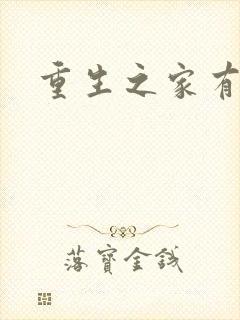 重生之家有
落寶金錢